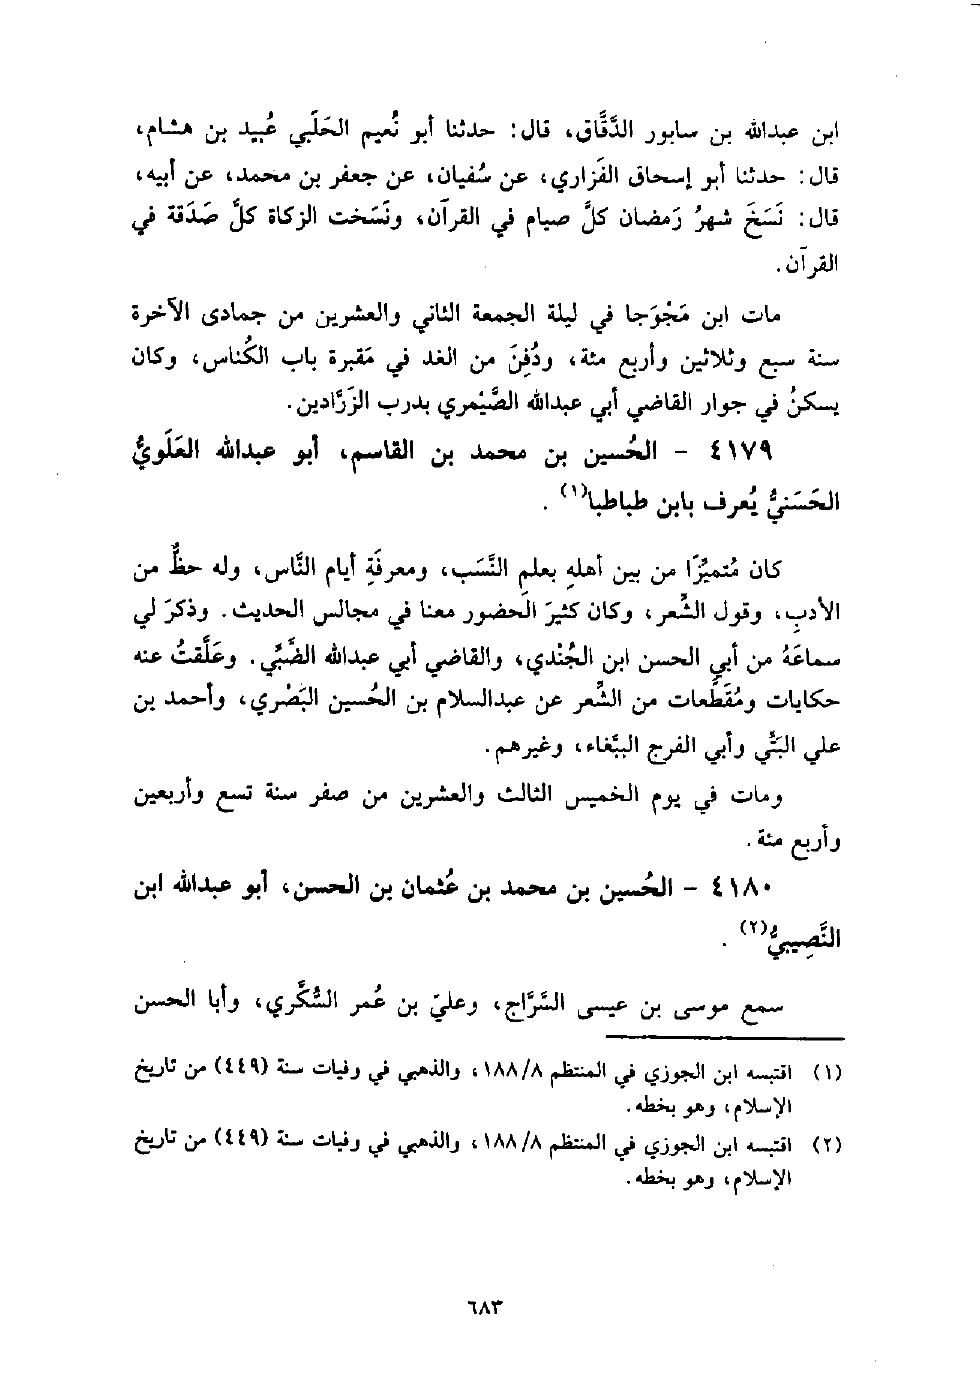 ابن عبدالله بن سابور الدَّقَّاق، قال: حدثنا أبو نُعيم الحَلَبي عُبيد بن هشام،
قال: حدثنا أبو إسحاق الفَزاري، عن سُفيان، عن جعفر بن محمد، عن أبيه،
قال: نَسَخَ شهرُ رَمضان كلَّ صيام في القرآن، ونَسَخت الزكاة كلَّ صَدَقة في
القرآن.
مات ابن مَجُوَجا في ليلة الجمعة الثاني والعشرين من جمادى الآخرة
سنة سبع وثلاثين وأربع مئة، ودُفِنَ من الغد في مَقبرة باب الكُناس، وكان
يسكنُ في جوار القاضي أبي عبدالله الصَّيْمري بدرب الزَّرَّادين.
٤١٧٩ - الحُسين بن محمد بن القاسم، أبو عبدالله العَلَويُّ
الحَسَنيُّ يُعرف بابن طباطبا(١) .
كان مُتميِّزًا من بين أهله بعلم النَّسَب، ومعرفَةِ أيام النَّاس، وله حظٌّ من
الأدبِ، وقول الشِّعر، وكان كثيرَ الحضور معنا في مجالس الحديث. وذكرَ لي
سماعَهُ من أبي الحسن ابن الجُنْدي، والقاضي أبي عبدالله الضَّبِّي. وعَلَّقتُ عنه
حكايات ومُقَطَّعات من الشِّعر عن عبدالسلام بن الحُسين البَصْري، وأحمد بن
علي البَتِّي وأبي الفرج الببَّغاء، وغيرهم.
ومات في يوم الخميس الثالث والعشرين من صفر سنة تسع وأربعين
وأربع مئة.
٤١٨٠ - الحُسين بن محمد بن عُثمان بن الحسن، أبو عبدالله ابن
النَّصِيبيُّ(٢) .
سمع موسى بن عيسى السَّرَّاج، وعليّ بن عُمر السُّكَّري، وأبا الحسن
(١) اقتبسه ابن الجوزي في المنتظم ٨/ ١٨٨، والذهبي في وفيات سنة (٤٤٩) من تاريخ
الإسلام، وهو بخطه.
(٢) اقتبسه ابن الجوزي في المنتظم ٨/ ١٨٨، والذهبي في وفيات سنة (٤٤٩) من تاريخ
الإسلام، وهو بخطه.
٦٨٣